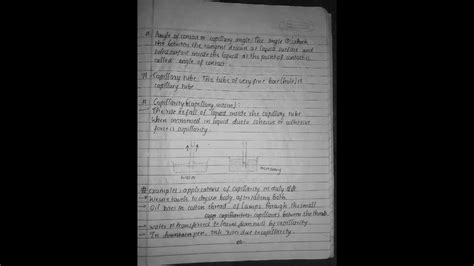 Angle of contact or capillary angle: The angle θ which
the between the tangent drawn at liquid surface and
tube surface inside the liquid at the point of contact is
called angle of contact.
Capillary tube: The tube of very fine bore (hole) is
capillary tube.
Capillarity (capillary action):
→ The rise or fall of liquid inside the capillary tube
when immersed in liquid due to cohesive or adhesive
force is capillarity.
water
mercury
# Examples, applications of capillarity in daily life
→ We use towels to dry our body after taking bath
→ Oil rises in cotton thread of lamps through the small
capillaries between the thread.
→ water is transferred to leaves from roots by capillarity.
→ In fountain pen, ink rises due to capillarity.